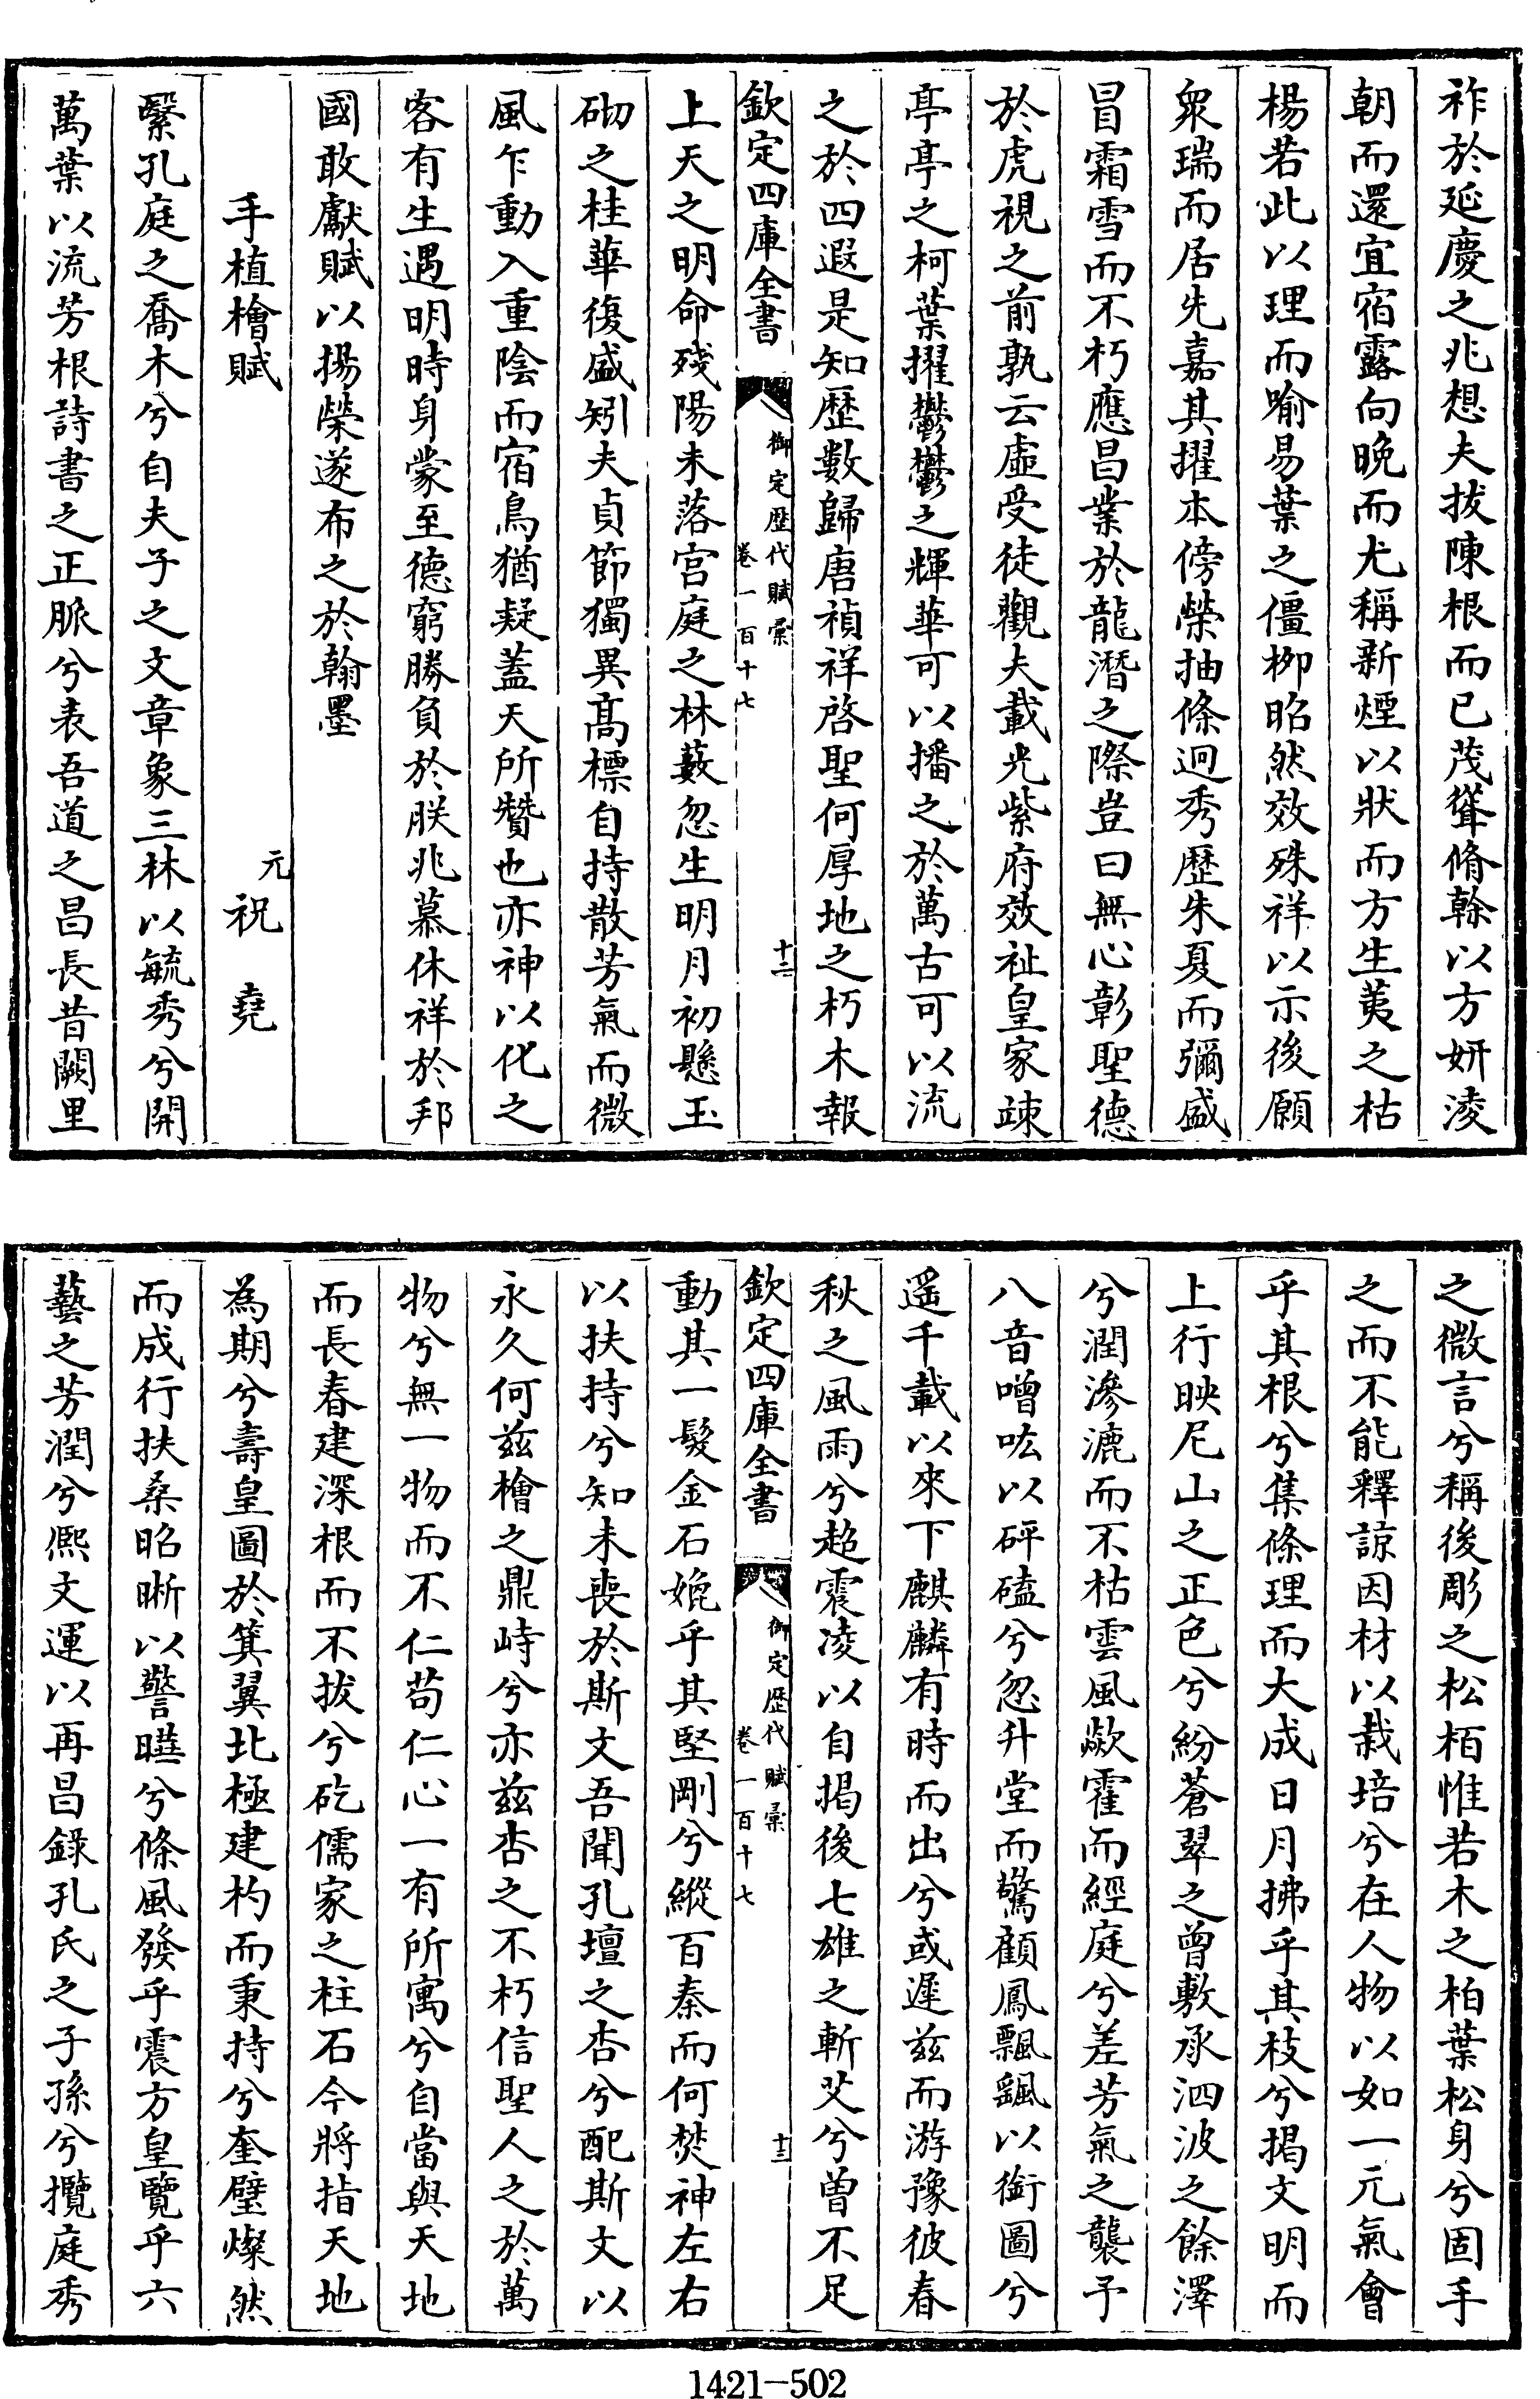 祚於延慶之兆想夫拔陳根而已茂聳脩幹以方妍淩
朝而還宜宿露向晚而尤稱新煙以狀而方生荑之枯
楊若此以理而喻易葉之僵柳昭然效殊祥以示後願
衆瑞而居先嘉其擢本傍榮抽條迥秀歴朱夏而彌盛
冒霜雪而不朽應昌業於龍潛之際豈曰無心彰聖德
於虎視之前孰云虛受徒觀夫載光紫府效祉皇家竦
亭亭之柯葉擢鬱鬱之輝華可以播之於萬古可以流
之於四遐是知歴數歸唐禎祥啓聖何厚地之朽木報
欽定四庫全書
御定歴代賦彙
卷一百十七
十二
上天之明命殘陽未落宫庭之林藪忽生明月初懸玉
砌之桂華復盛矧夫貞節獨異髙標自持散芳氣而微
風乍動入重陰而宿鳥猶疑蓋天所贊也亦神以化之
客有生遇明時身蒙至德窮勝負於朕兆慕休祥於邦
國敢獻賦以揚榮遂布之於翰墨
手植檜賦
元祝堯
繄孔庭之喬木兮自夫子之文章象三林以毓秀兮開
萬葉以流芳根詩書之正脈兮表吾道之昌長昔闕里
之微言兮稱後彫之松栢惟若木之柏葉松身兮固手
之而不能釋諒因材以栽培兮在人物以如一元氣會
乎其根兮集條理而大成日月拂乎其枝兮揭文明而
上行映尼山之正色兮紛蒼翠之曾敷承泗波之餘澤
兮潤滲漉而不枯雲風歘霍而經庭兮差芳氣之襲予
八音噌吰以砰磕兮忽升堂而驚顧鳳飄飖以銜圖兮
遥千載以來下麒麟有時而出兮或遲兹而游豫彼春
秋之風雨兮超震凌以自揭後七雄之斬艾兮曽不足
欽定四庫全書
御定歴代賦彙
卷一百十七
十三
動其一髮金石娩乎其堅剛兮縱百秦而何焚神左右
以扶持兮知未喪於斯文吾聞孔壇之杏兮配斯文以
永久何兹檜之鼎峙兮亦兹杏之不朽信聖人之於萬
物兮無一物而不仁茍仁心一有所寓兮自當與天地
而長春建深根而不拔兮矻儒家之柱石今將指天地
為期兮壽皇圖於箕翼北極建杓而秉持兮奎璧燦然
而成行扶桑昭晰以警曀兮條風發乎震方皇覽乎六
藝之芳潤兮熈文運以再昌錄孔氏之子孫兮攬庭秀
1421-502